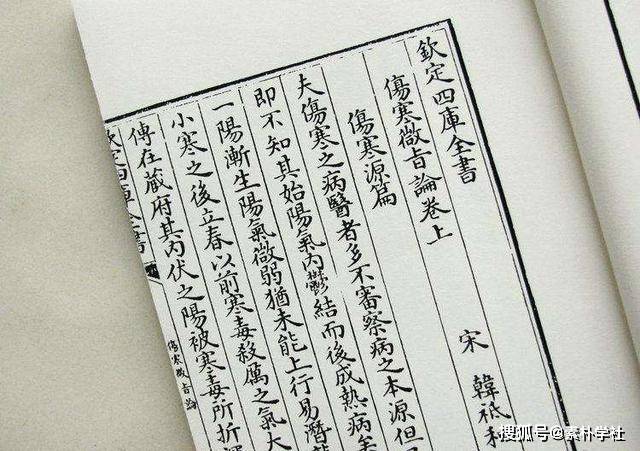 欽定四庫全書
傷寒微旨論卷上
宋 韓祗和
傷寒源篇
夫傷寒之病醫者多不審察病之本源但
即不知其始陽氣內鬱結而後成熱病矣
一陽漸生陽氣微弱猶未能上行易潛龍
小寒之後立春以前寒毒殺厲之氣大
傳在藏府其內伏之陽被寒毒所折
欽定四庫全書
傷寒微旨論
搜狐号@素朴学社